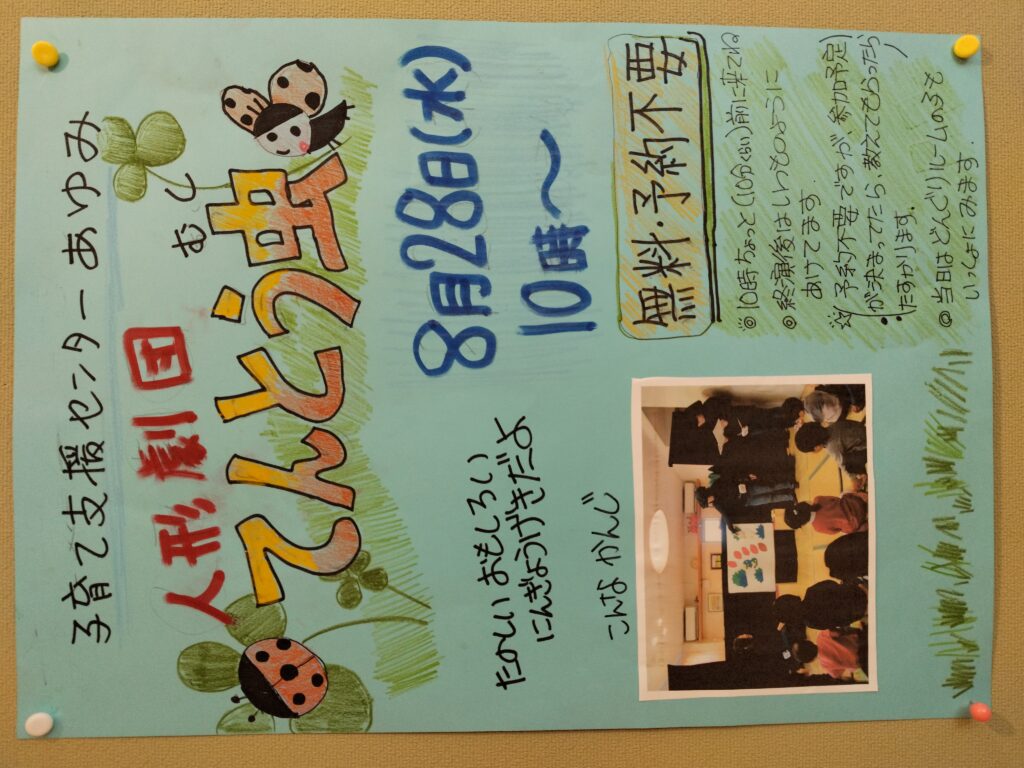 子育て支援センターあゆみ
人形劇団
むし
てんとう虫
8月28日(水)
10時〜
たのしいおもしろい
にんぎょうげきだよ
こんなかんじ
無料・予約不要
◎10時ちょっと(10分くらい)前に来てね
◎終演後はいつものように
あけてます
☆(予約不要ですが、参加予定)
が決まってたら教えてもらったら
たすかります.
◎当日はどんぐりルームの子も
いっしょにみます.